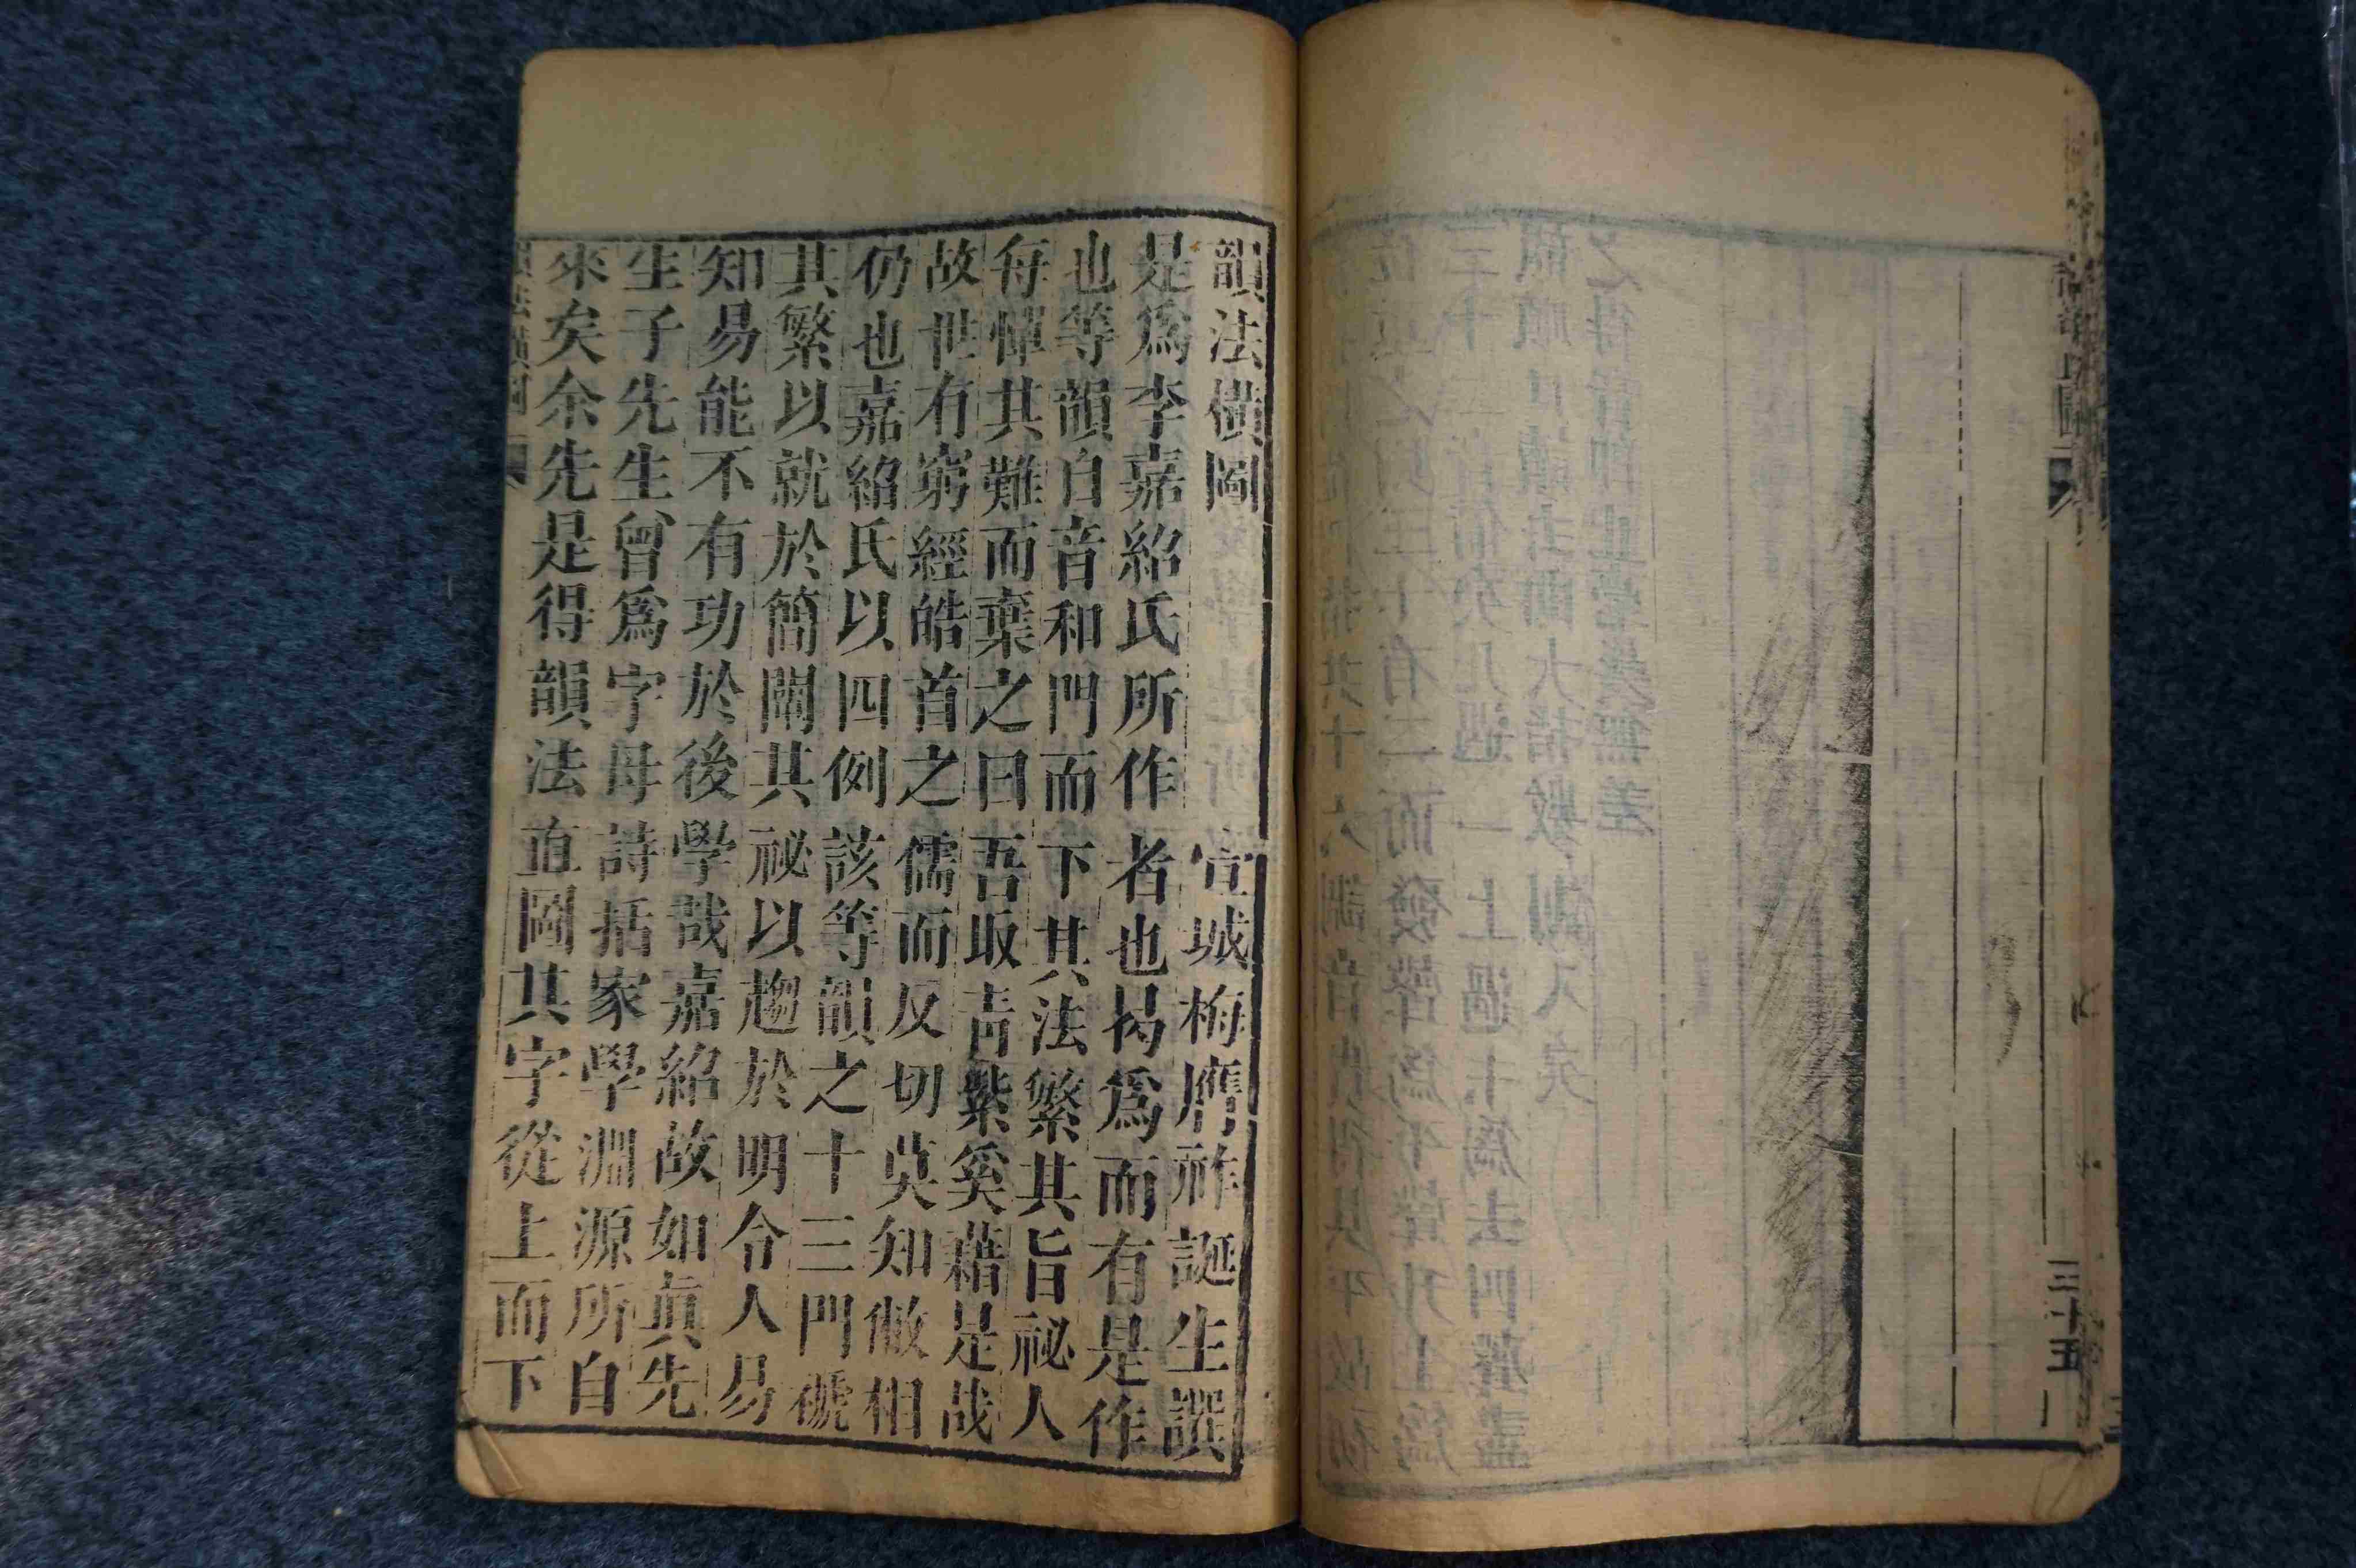 三十五
韻法橫圖　宣城梅膺祚誕生譔
是爲李嘉紹氏所作者也曷爲而有是作
也等韻自音和門而下其法繁其旨祕人
每憚其難而棄之曰吾取青紫奚藉是哉
故世有窮經皓首之儒而反切莫知敝相
仍也嘉紹氏以四例該等韻之十三門褫
其繁以就於簡闡其祕以趨於明令人易
知易能不有功於後學哉嘉紹故如眞先
生子先生曾爲字母詩括家學淵源所自
來矣余先是得韻法直圖其字從上而下
韻法橫圖